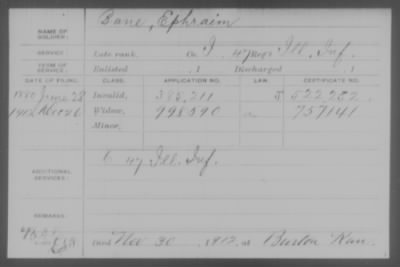 NAME OF SOLDIER: Bane, Ephraim
SERVICE: Late rank, Co. I 47 Reg't Ill. Inf.
TERM OF SERVICE: Enlisted , 1 Discharged , 1
DATE OF FILING. CLASS. APPLICATION NO. LAW. CERTIFICATE NO.
1880 June 28 Invalid, 388,211 522282.
Widow, 998590 757141
Minor,
ADDITIONAL SERVICES: 47 Ill. Inf.
REMARKS:
Nov 30, 1912, at Burton Kan.